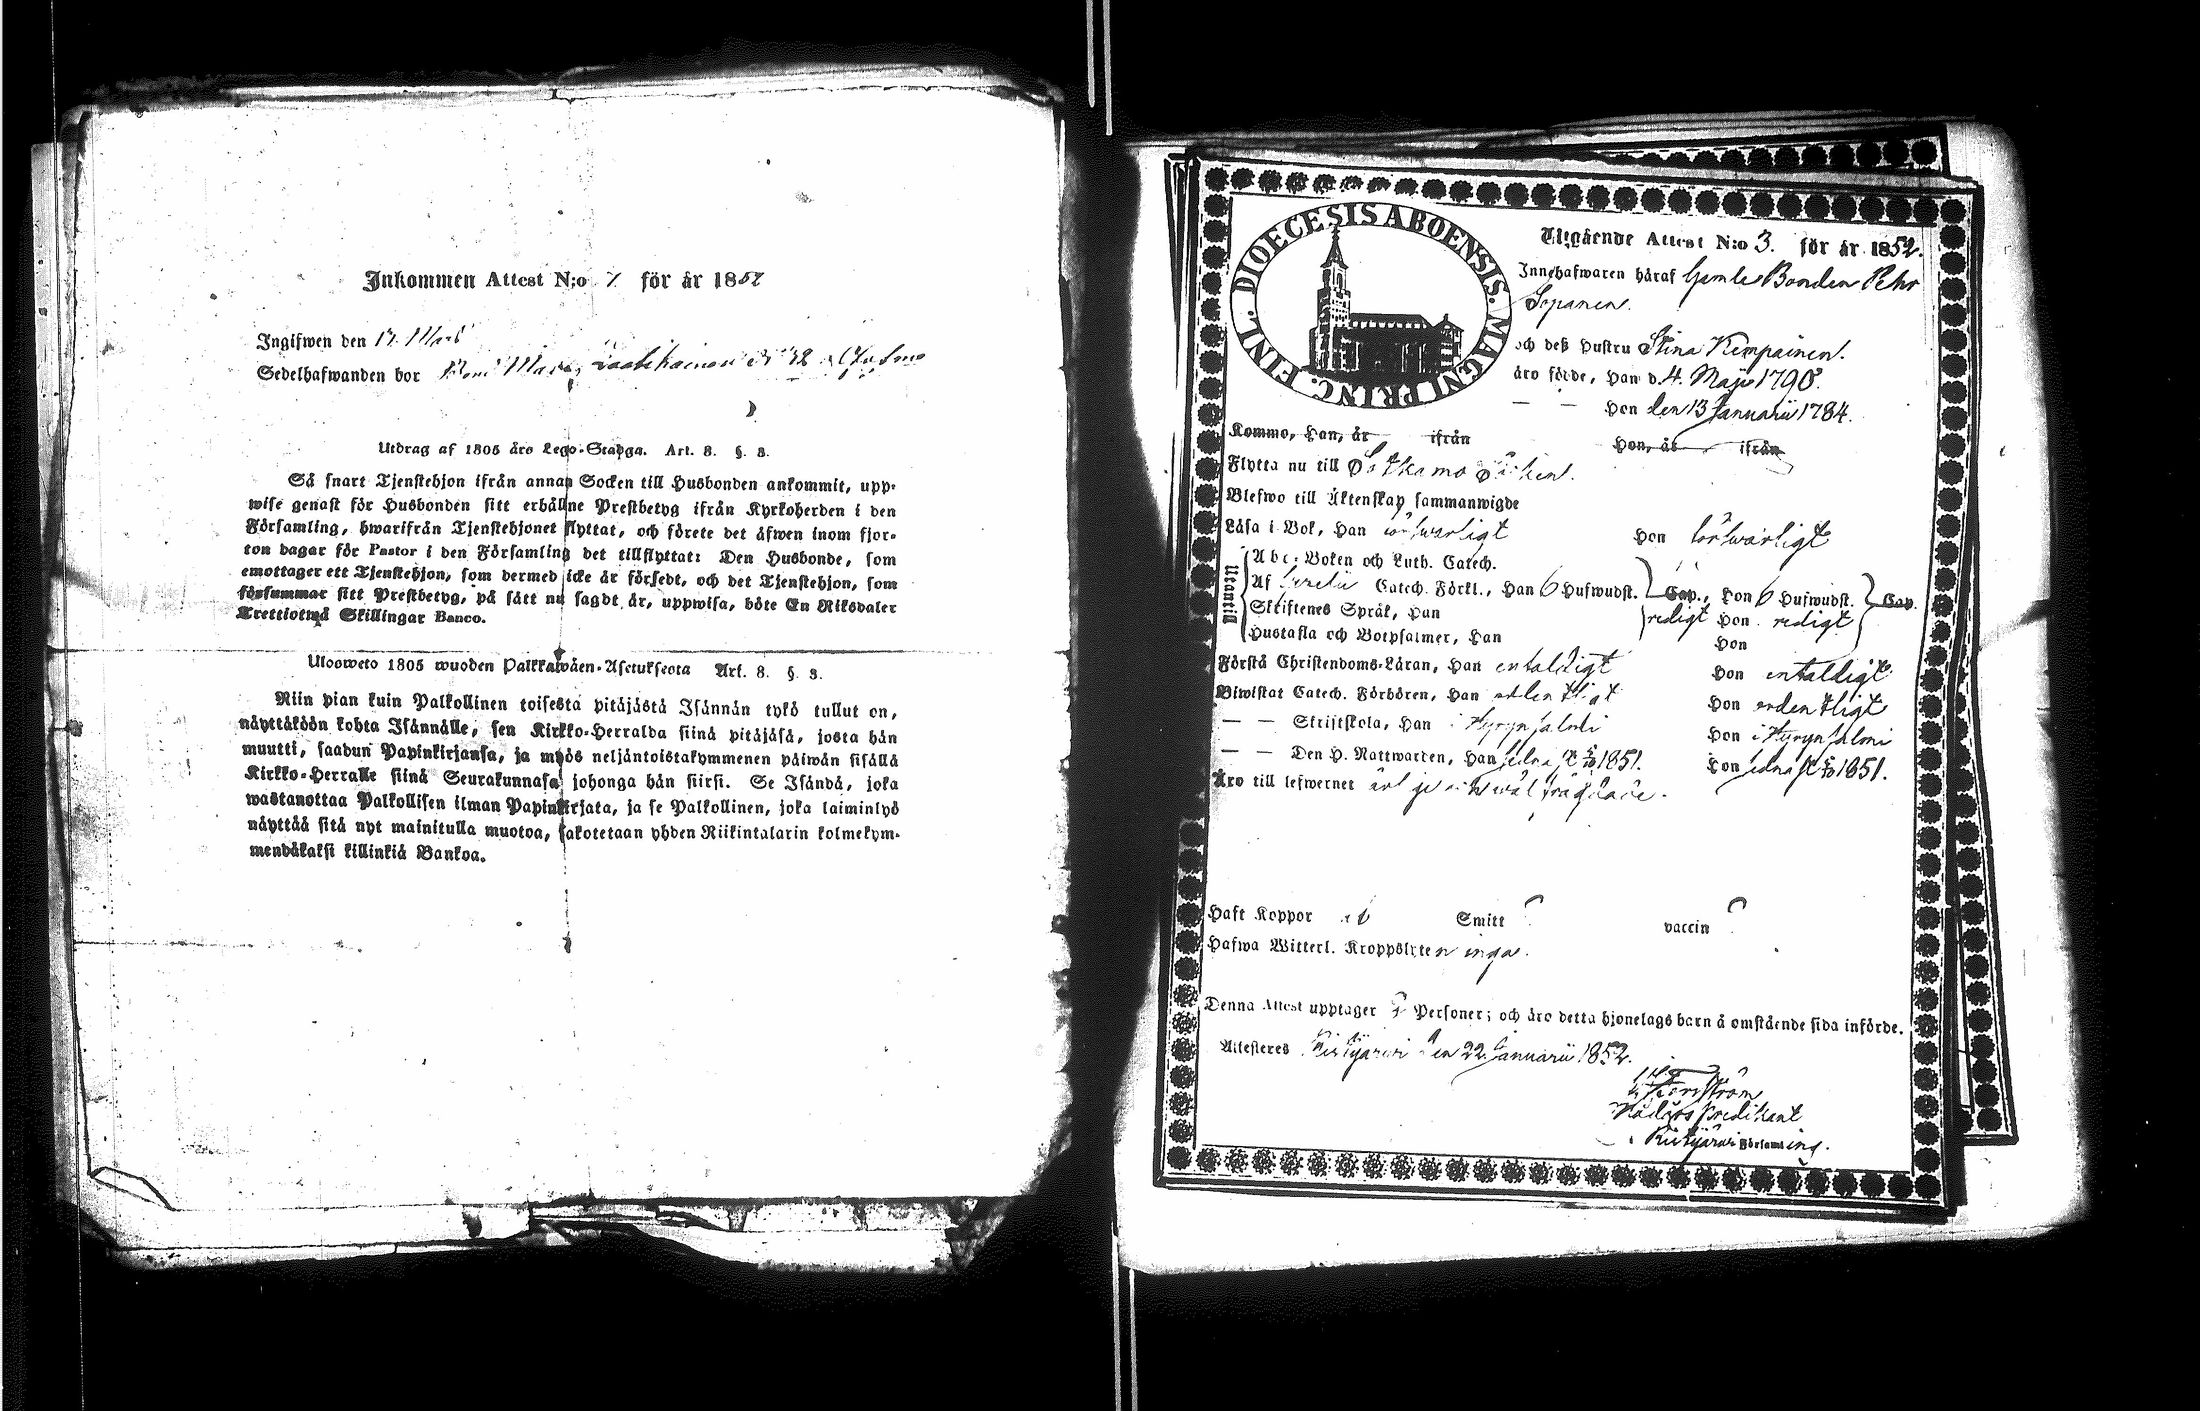 Inkommen Attest N:o 7 för år 1852
Ingifwen den 17 Mars
Sedelhafwanden bor Laatikainen N 42
Utdrag af 1805 års Lego-Stadga. Art. 8. §. 3.
Så snart Tjenstehjon ifrån annan Socken till Husbonden ankommit, upp-
wise genast för Husbonden sitt erhållne Prestbetyg ifrån Kyrkoherden i den
Församling, hwarifrån Tjenstehjonet flyttat, och förete det äfwen inom fjor-
ton dagar för Pastor i den Församling det tillflyttat: Den Husbonde, som
emottager ett Tjenstehjon, som dermed icke är försedt, och det Tjenstehjon, som
försummar sitt Prestbetyg, på sätt nu sagdt är, uppwisa, böte En Riksdaler
Trettiotwå Skillingar Banco.
Uloosweto 1805 wuoden Palkkawäen-Asetuksesta Art. 8. §. 3.
Niin pian kuin Palkollinen toisesta pitäjästä Isännän tykö tullut on,
näyttäköön kohta Isännälle, sen Kirkko-Herralda siinä pitäjäsä, josta hän
muutti, saadun Papinkirjansa, ja myös neljäntoistakymmenen päiwän sisällä
Kirkko-Herralle siinä Seurakunnasa johonga hän siirsi. Se Isändä, joka
wastanottaa Palkollisen ilman Papinkirjata, ja se Palkollinen, joka laiminlyö
näyttää sitä nyt mainitulla muotoa, sakotetaan yhden Riikintalarin kolmekym-
mendäkaksi killinkiä Bankoa.
DIOECESIS ABOENSIS. MAGNI PRINC. FINL.
Utgående Attest N:o 3. för år 1852.
Innehafwaren häraf Gamle Bonden Pehr
Sopanen.
och deß Hustru Stina Kempainen.
äro födde, Han d. 4. Maji 1790.
— — Hon den 13 Januarii 1784.
Kommo, Han, år ifrån Hon, år ifrån
Flytta nu till Sotkamo Socken.
Blefwo till Äktenskap sammanwigde
Läsa i Bok, Han försvarligt Hon försvarligt
Utantill
Abc-Boken och Luth. Catech.
Af Svebelii Catech. Förkl., Han 6 Hufwudst. Cap., Hon 6 Hufwudst. Cap.
Skriftenes Språk, Han redigt Hon redigt
Hustafla och Botpsalmer, Han Hon
Förstå Christendoms-Läran, Han enfaldigt Hon enfaldigt
Biwistat Catech. Förhören, Han ordentligt Hon ordentligt
— — Skriftskola, Han i Hyrynsalmi Hon i Hyrynsalmi
— — Den H. Nattwarden, Han sednast 1851. Hon sednast 1851.
Äro till lefwernet wäl frägdade.
Haft Koppor Smitt ? vaccin ?
Hafwa Witterl. Kroppslyten inga.
Denna Attest upptager 2 Personer; och äro detta hjonelags barn å omstående sida införde.
Attesteras Ristijärwi den 22 Januarii 1852.
Nådårs Predikant
i Ristijärwi Församling.